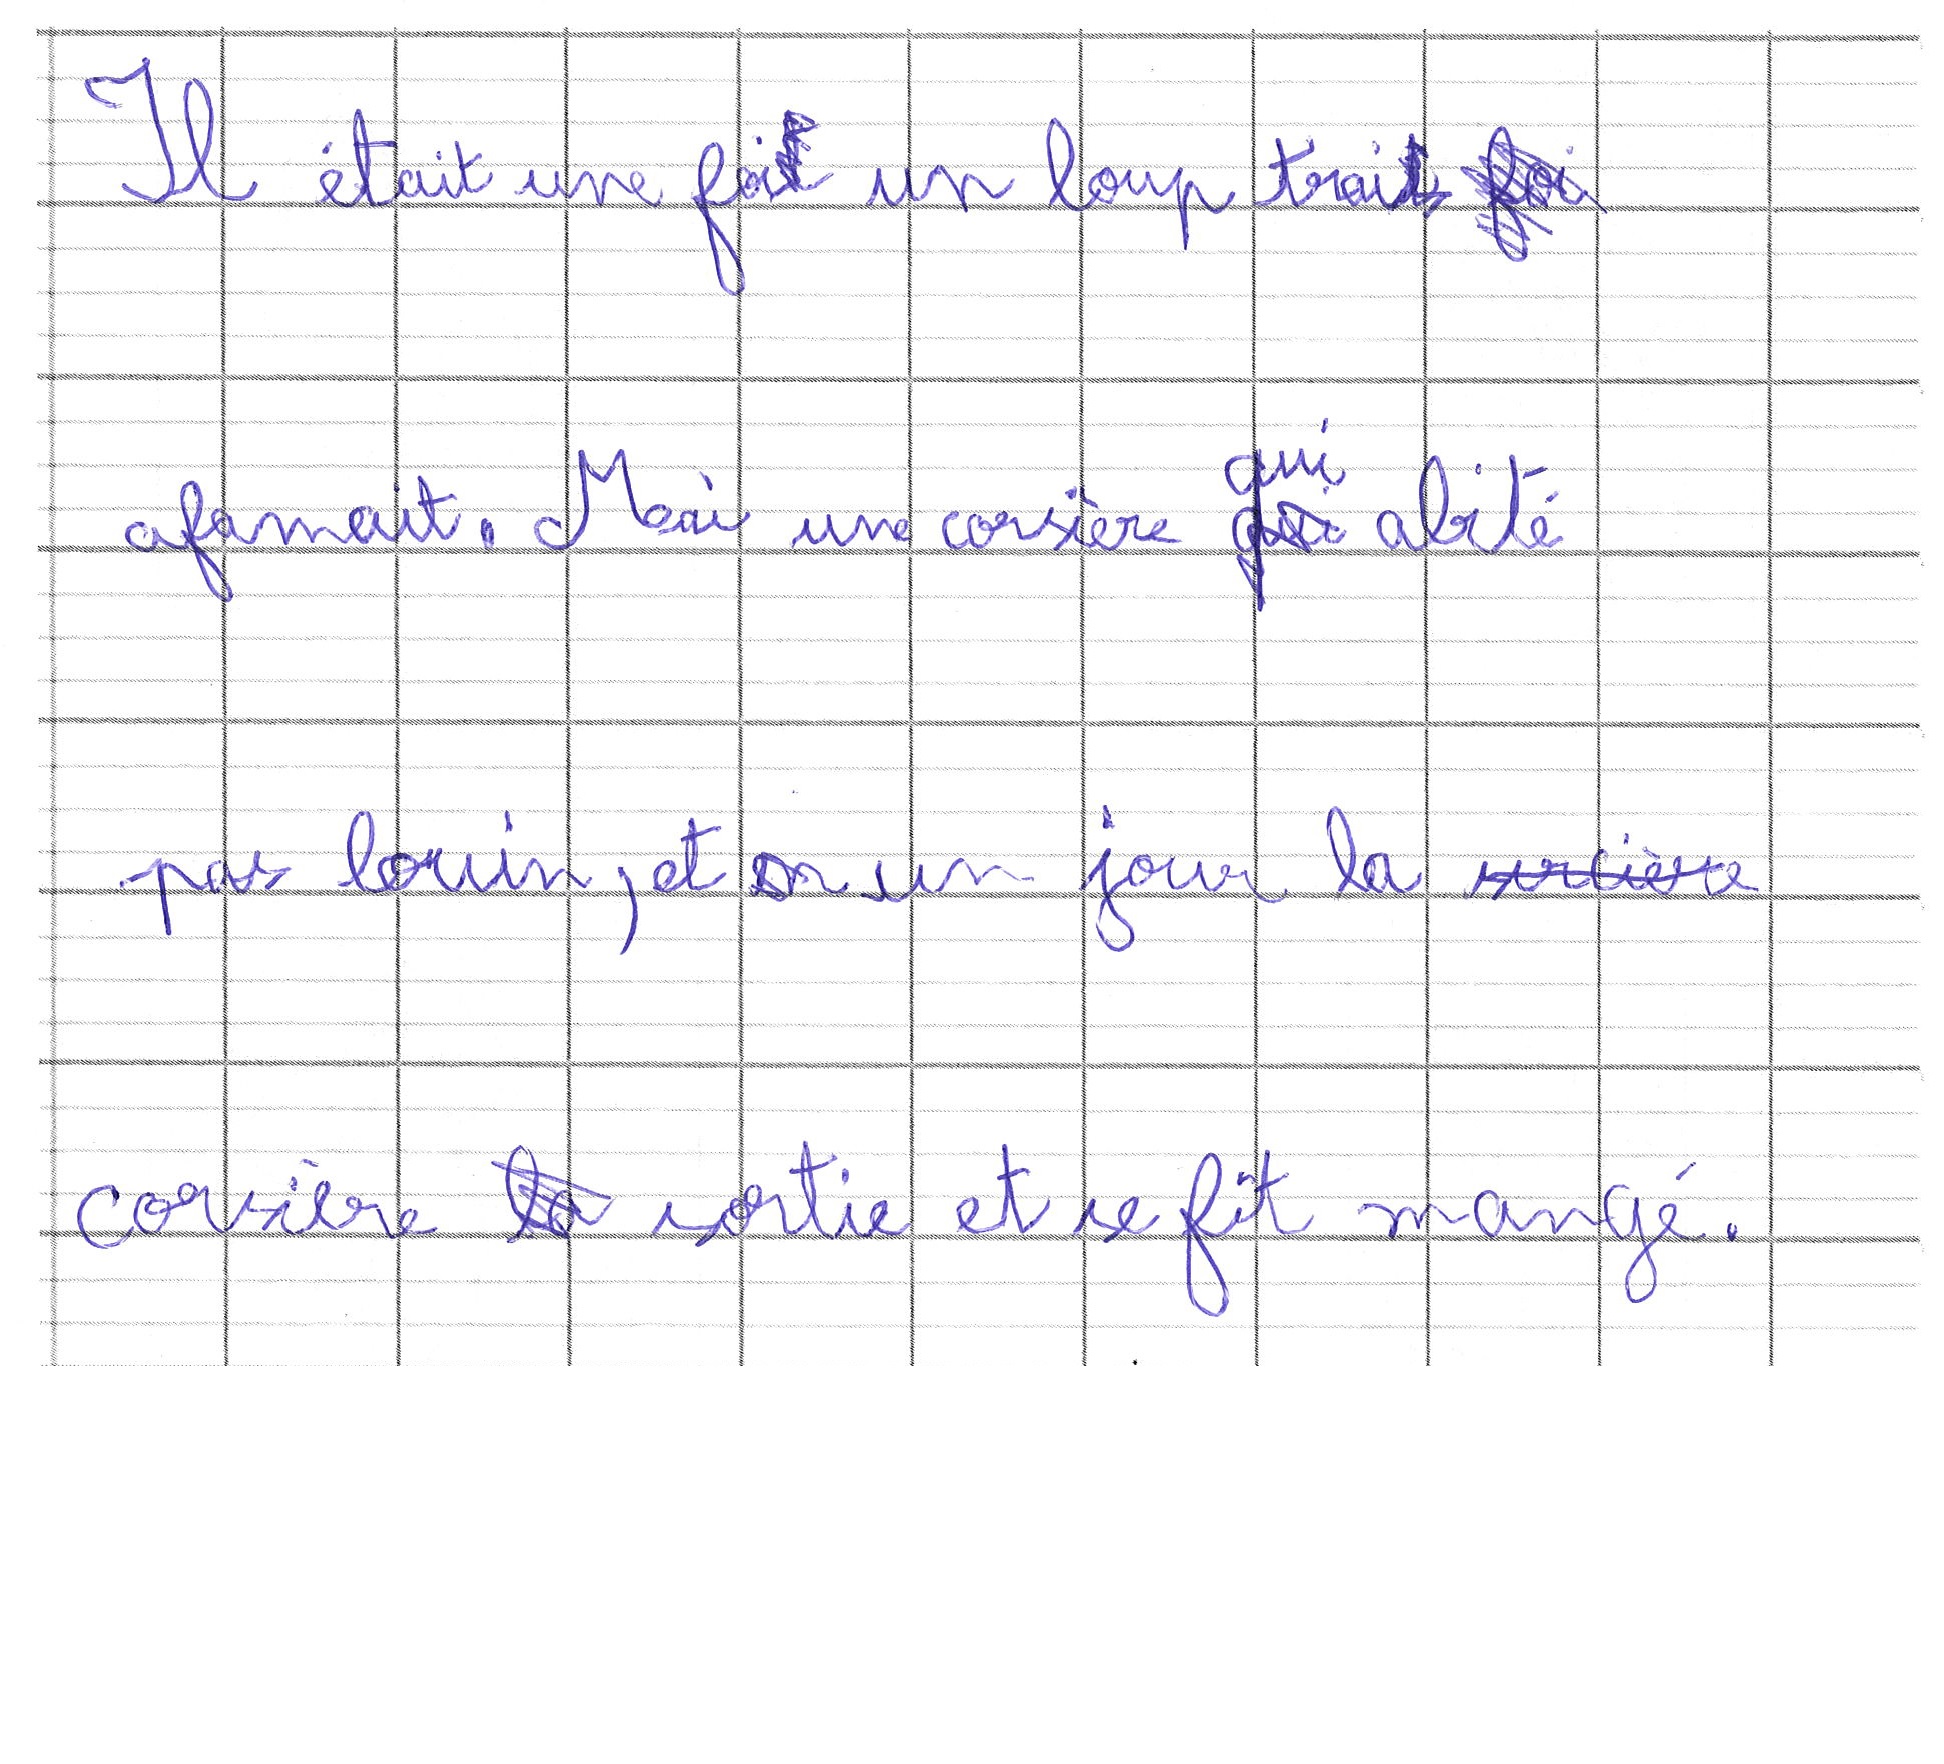 Il était une foit un loup trais
afamait. Mai une corsière qui abité
pas louin, et un jour la sorcière
corsière sortie et se fît mangé.